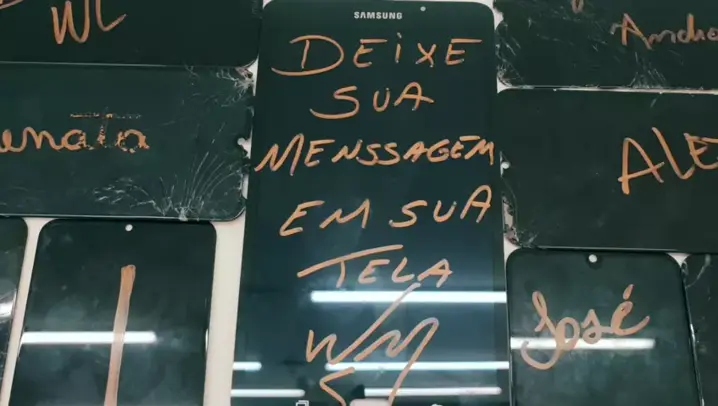 WL
SAMSUNG
DEIXE
SUA
MENSSAGEM
EM SUA
TELA
WM
Andre
enata
ALE
José